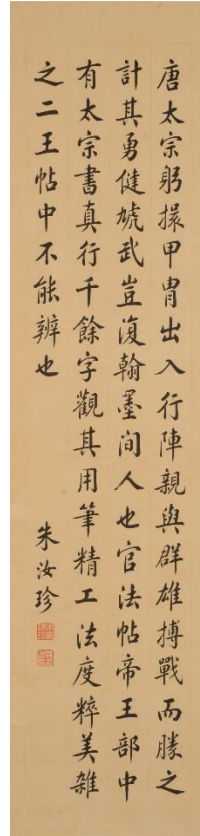 唐太宗躬擐甲胄出入行陣親與群雄搏戰而勝之
計其勇健虓武豈復翰墨間人也官法帖帝王部中
有太宗書真行千餘字觀其用筆精工法度粹美雜
之二王帖中不能辨也
朱汝珍